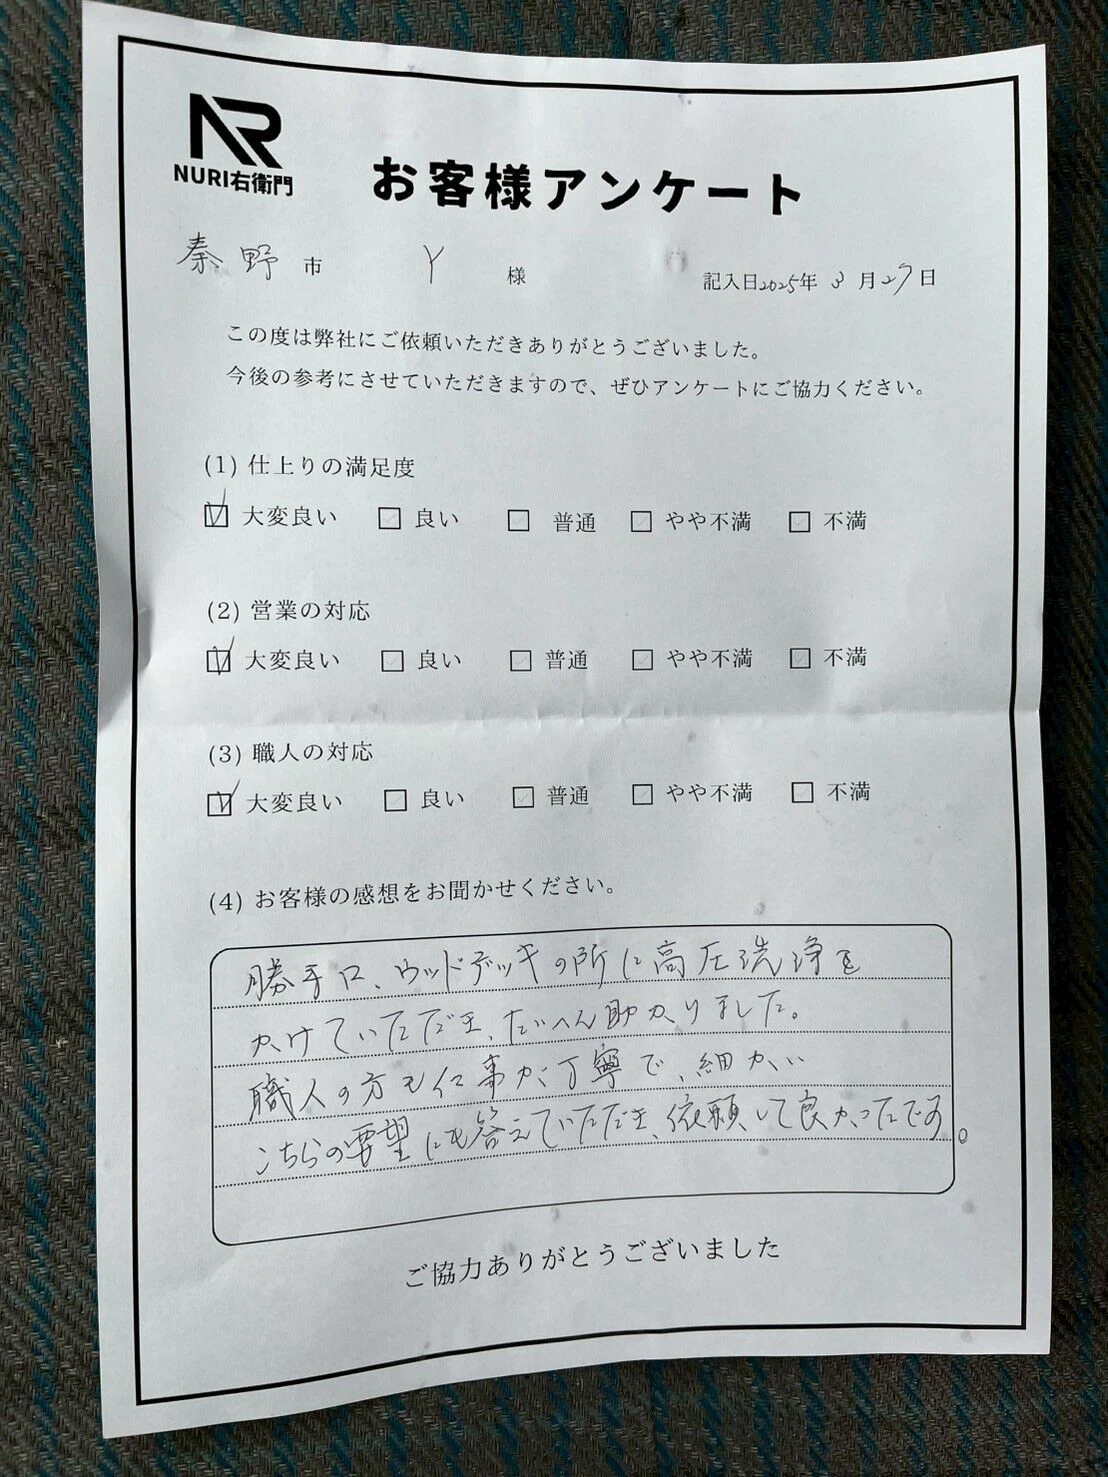 NR
NURI右衛門
お客様アンケート
秦野 市 Y 様 記入日2025年 3 月 27 日
この度は弊社にご依頼いただきありがとうございました。
今後の参考にさせていただきますので、ぜひアンケートにご協力ください。
(1) 仕上りの満足度
☑ 大変良い □ 良い □ 普通 □ やや不満 □ 不満
(2) 営業の対応
☑ 大変良い □ 良い □ 普通 □ やや不満 □ 不満
(3) 職人の対応
☑ 大変良い □ 良い □ 普通 □ やや不満 □ 不満
(4) お客様の感想をお聞かせください。
勝手口、ウッドデッキの所に高圧洗浄を
かけていただき、たいへん助かりました。
職人の方も仕事が丁寧で、細かい
こちらの要望にも答えていただき、依頼して良かったです。
ご協力ありがとうございました